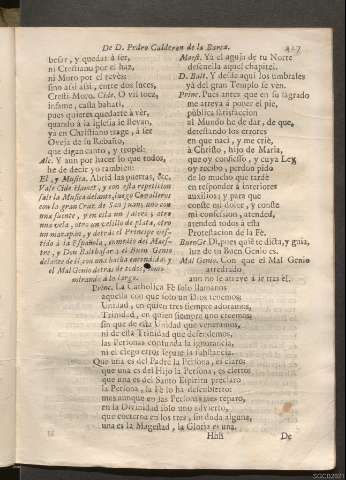 De D. Pedro Calderon de la Barca.
besar, y quedar à ser,
ni Christiano por el haz,
ni Moro por el revès;
sino assi assi, entre dos luces,
Cresti-Moro. Cide. O vil soez,
infame, casta bahari,
pues quieres quedarte à vèr,
quando à la Iglesia le llevan,
ya en Christiano trage, à ser
Oveja de su Rebaño,
que digan canto, y tropèl:
Alc. Y aun por hacer lo que todos,
he de decir yo tambien:
El, y Musica. Abrid las puertas, &c.
Vase Cide Hamet, y con esta repeticion
sale la Musica delante, luego Cavalleros
con la gran Cruz de San Juan, uno con
una fuente, y en ella un y otro
una vela, otro un de plata, otro
un mazapan, y detràs el Principe ves-
tido à la Española, enmedio del Maes-
tre, y Don Balthasar, el Buen Genio
delante de èl con una hacha encendida, y
el Mal Genio detràs de todos, como
mirando à lo largo.
Maest. Yà el aguja de tu Norte
descuella aquel chapitel.
D. Balt. Y desde aqui los umbrales
yà del gran Templo se vèn.
Princ. Pues antes que en su sagrado
me atreva à poner el pie,
publica satisfaccion
al Mundo he de dar, de que,
detestando los errores
en que nacì, y me criè,
à Christo, hijo de Maria,
que oy confiesso, y cuya Ley
oy recibo, perdon pido
de lo mucho que tardè
en responder à interiores
auxilios; y para que
conste mi dolor, y conste
mi confession, atended,
atended todos à esta
Protestacion de la Fè.
Buen Ge. Di, pues quiè te dicta, y guia,
luz de tu Buen Genio es.
Mal Genio. Con que el Mal Genio
arredrado,
aun no se atreve à ir tras èl.
Princ. La Catholica Fè solo llamamos
aquella con que solo un Dios tenemos;
Unidad, en quien tres siempre adoramos,
Trinidad, en quien siempre uno creemos;
sin que de esta Unidad que veneramos,
ni de esta Trinidad que defendemos,
las Personas confunda la ignorancia,
ni el ciego error separe la substancia.
Que una es del Padre la Persona, es claro;
que una es del Hijo la Persona, es cierto;
que una es del Santo Espiritu preclaro
la Persona, la Fè lo ha descubierto:
mas aunque en las Personas tres reparo,
en la Divinidad solo uno advierto,
que eterna en los tres, sin duda alguna,
una es la Magestad, la Gloria es una.
De